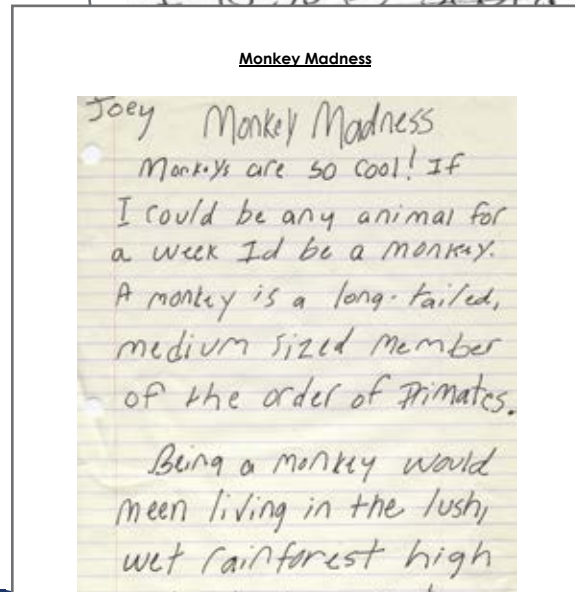 Monkey Madness
Joey Monkey Madness
Monkeys are so cool! If
I could be any animal for
a week Id be a monkey.
A monkey is a long-tailed,
medium sized member
of the order of Primates.
Being a monkey would
meen living in the lush,
wet rainforest high